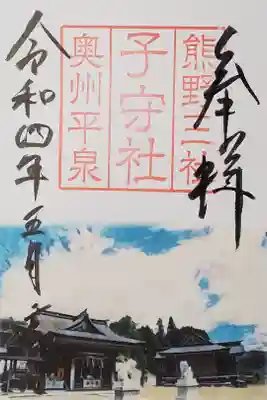 奉拝
熊野三社
子守社
奥州平泉
令和四年五月